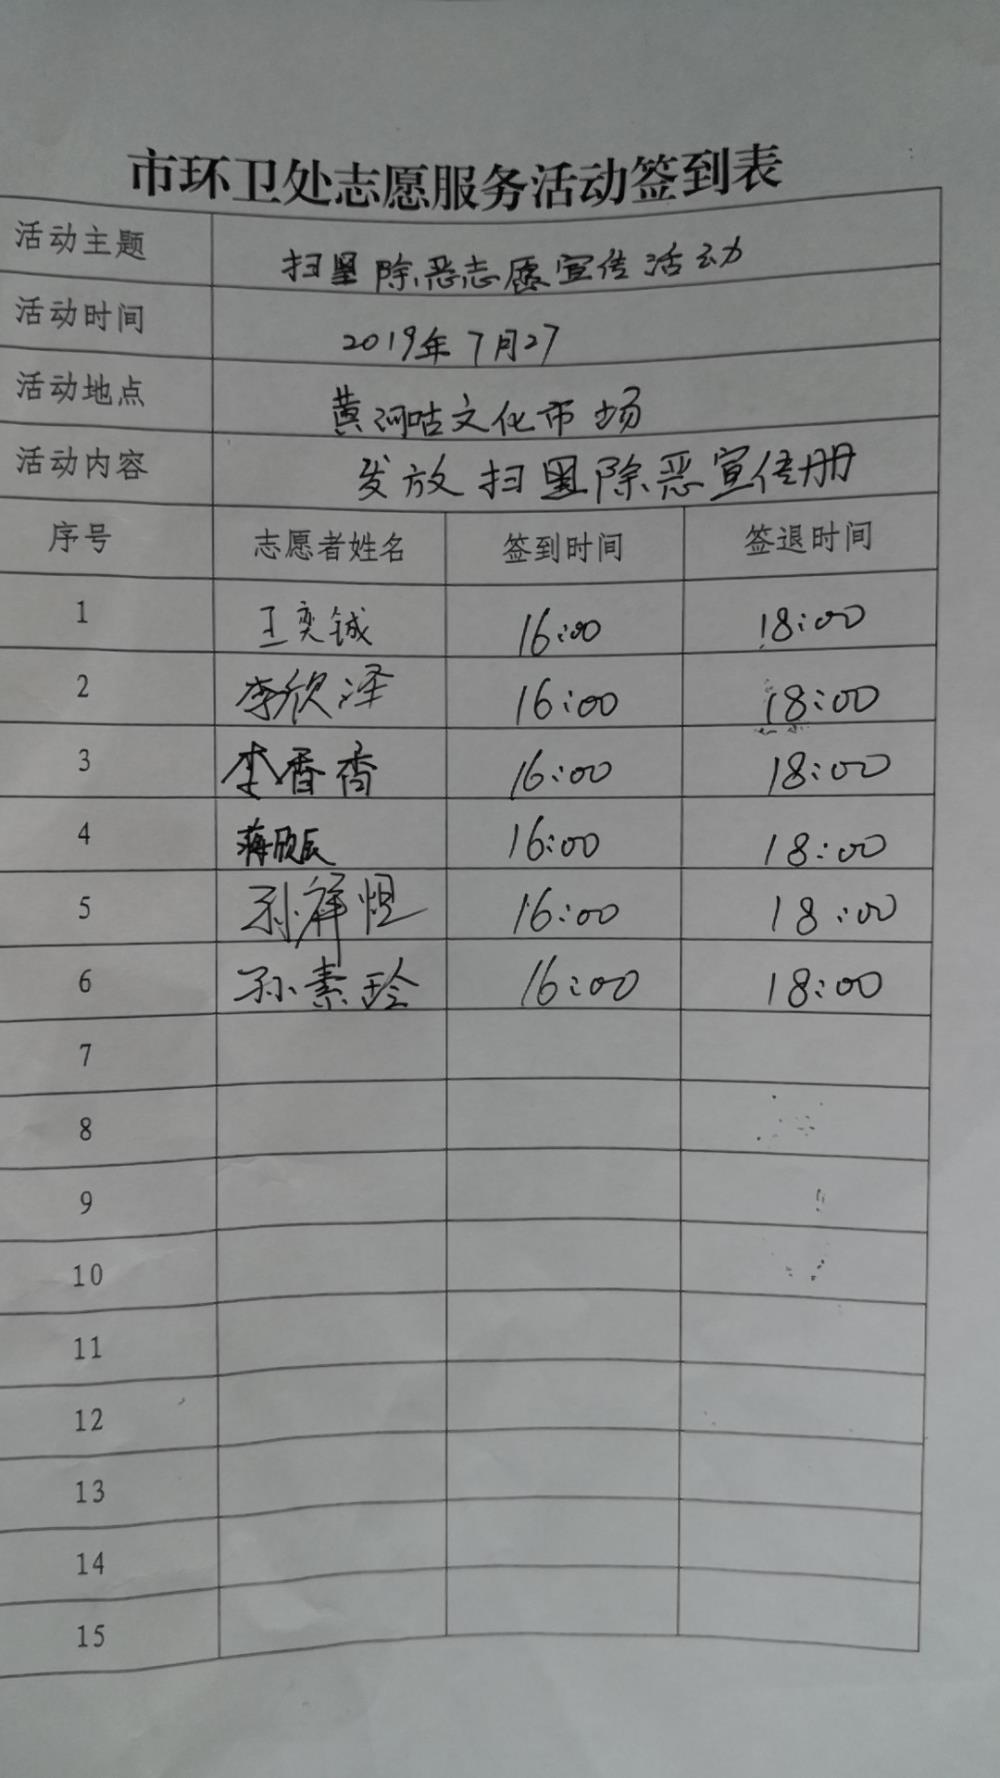 市环卫处志愿服务活动签到表
活动主题 扫黑除恶志愿宣传活动
活动时间 2019年7月27
活动地点 黄河咕文化市场
活动内容 发放扫黑除恶宣传册
序号 志愿者姓名 签到时间 签退时间
1 王奕铖 16:00 18:00
2 李欣泽 16:00 18:00
3 李香香 16:00 18:00
4 蒋欣辰 16:00 18:00
5 孙祥恺 16:00 18:00
6 孙素玲 16:00 18:00
7
8
9
10
11
12
13
14
15